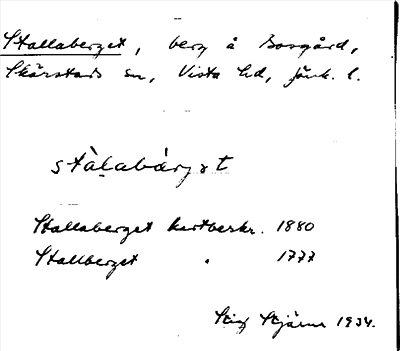 Stallaberget, berg å Bosgård,
Skärstads sn, Vista hd, Jönk. l.
stàlabárjət
Stallaberget kartbeskr. 1880
Stallberget " 1777
Stig Stjärne 1934.